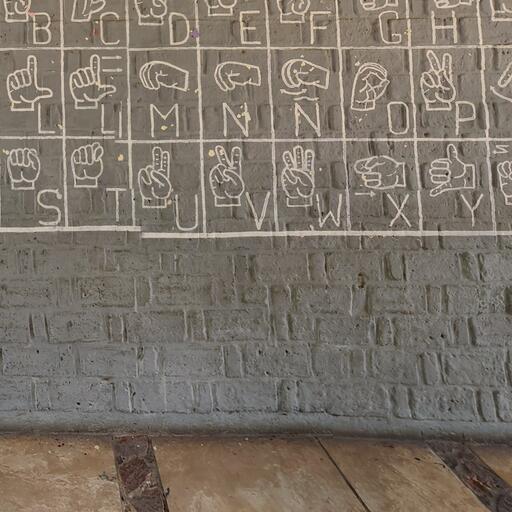 B C D E F G H
L LL M N Ñ O P
S T U V W X Y